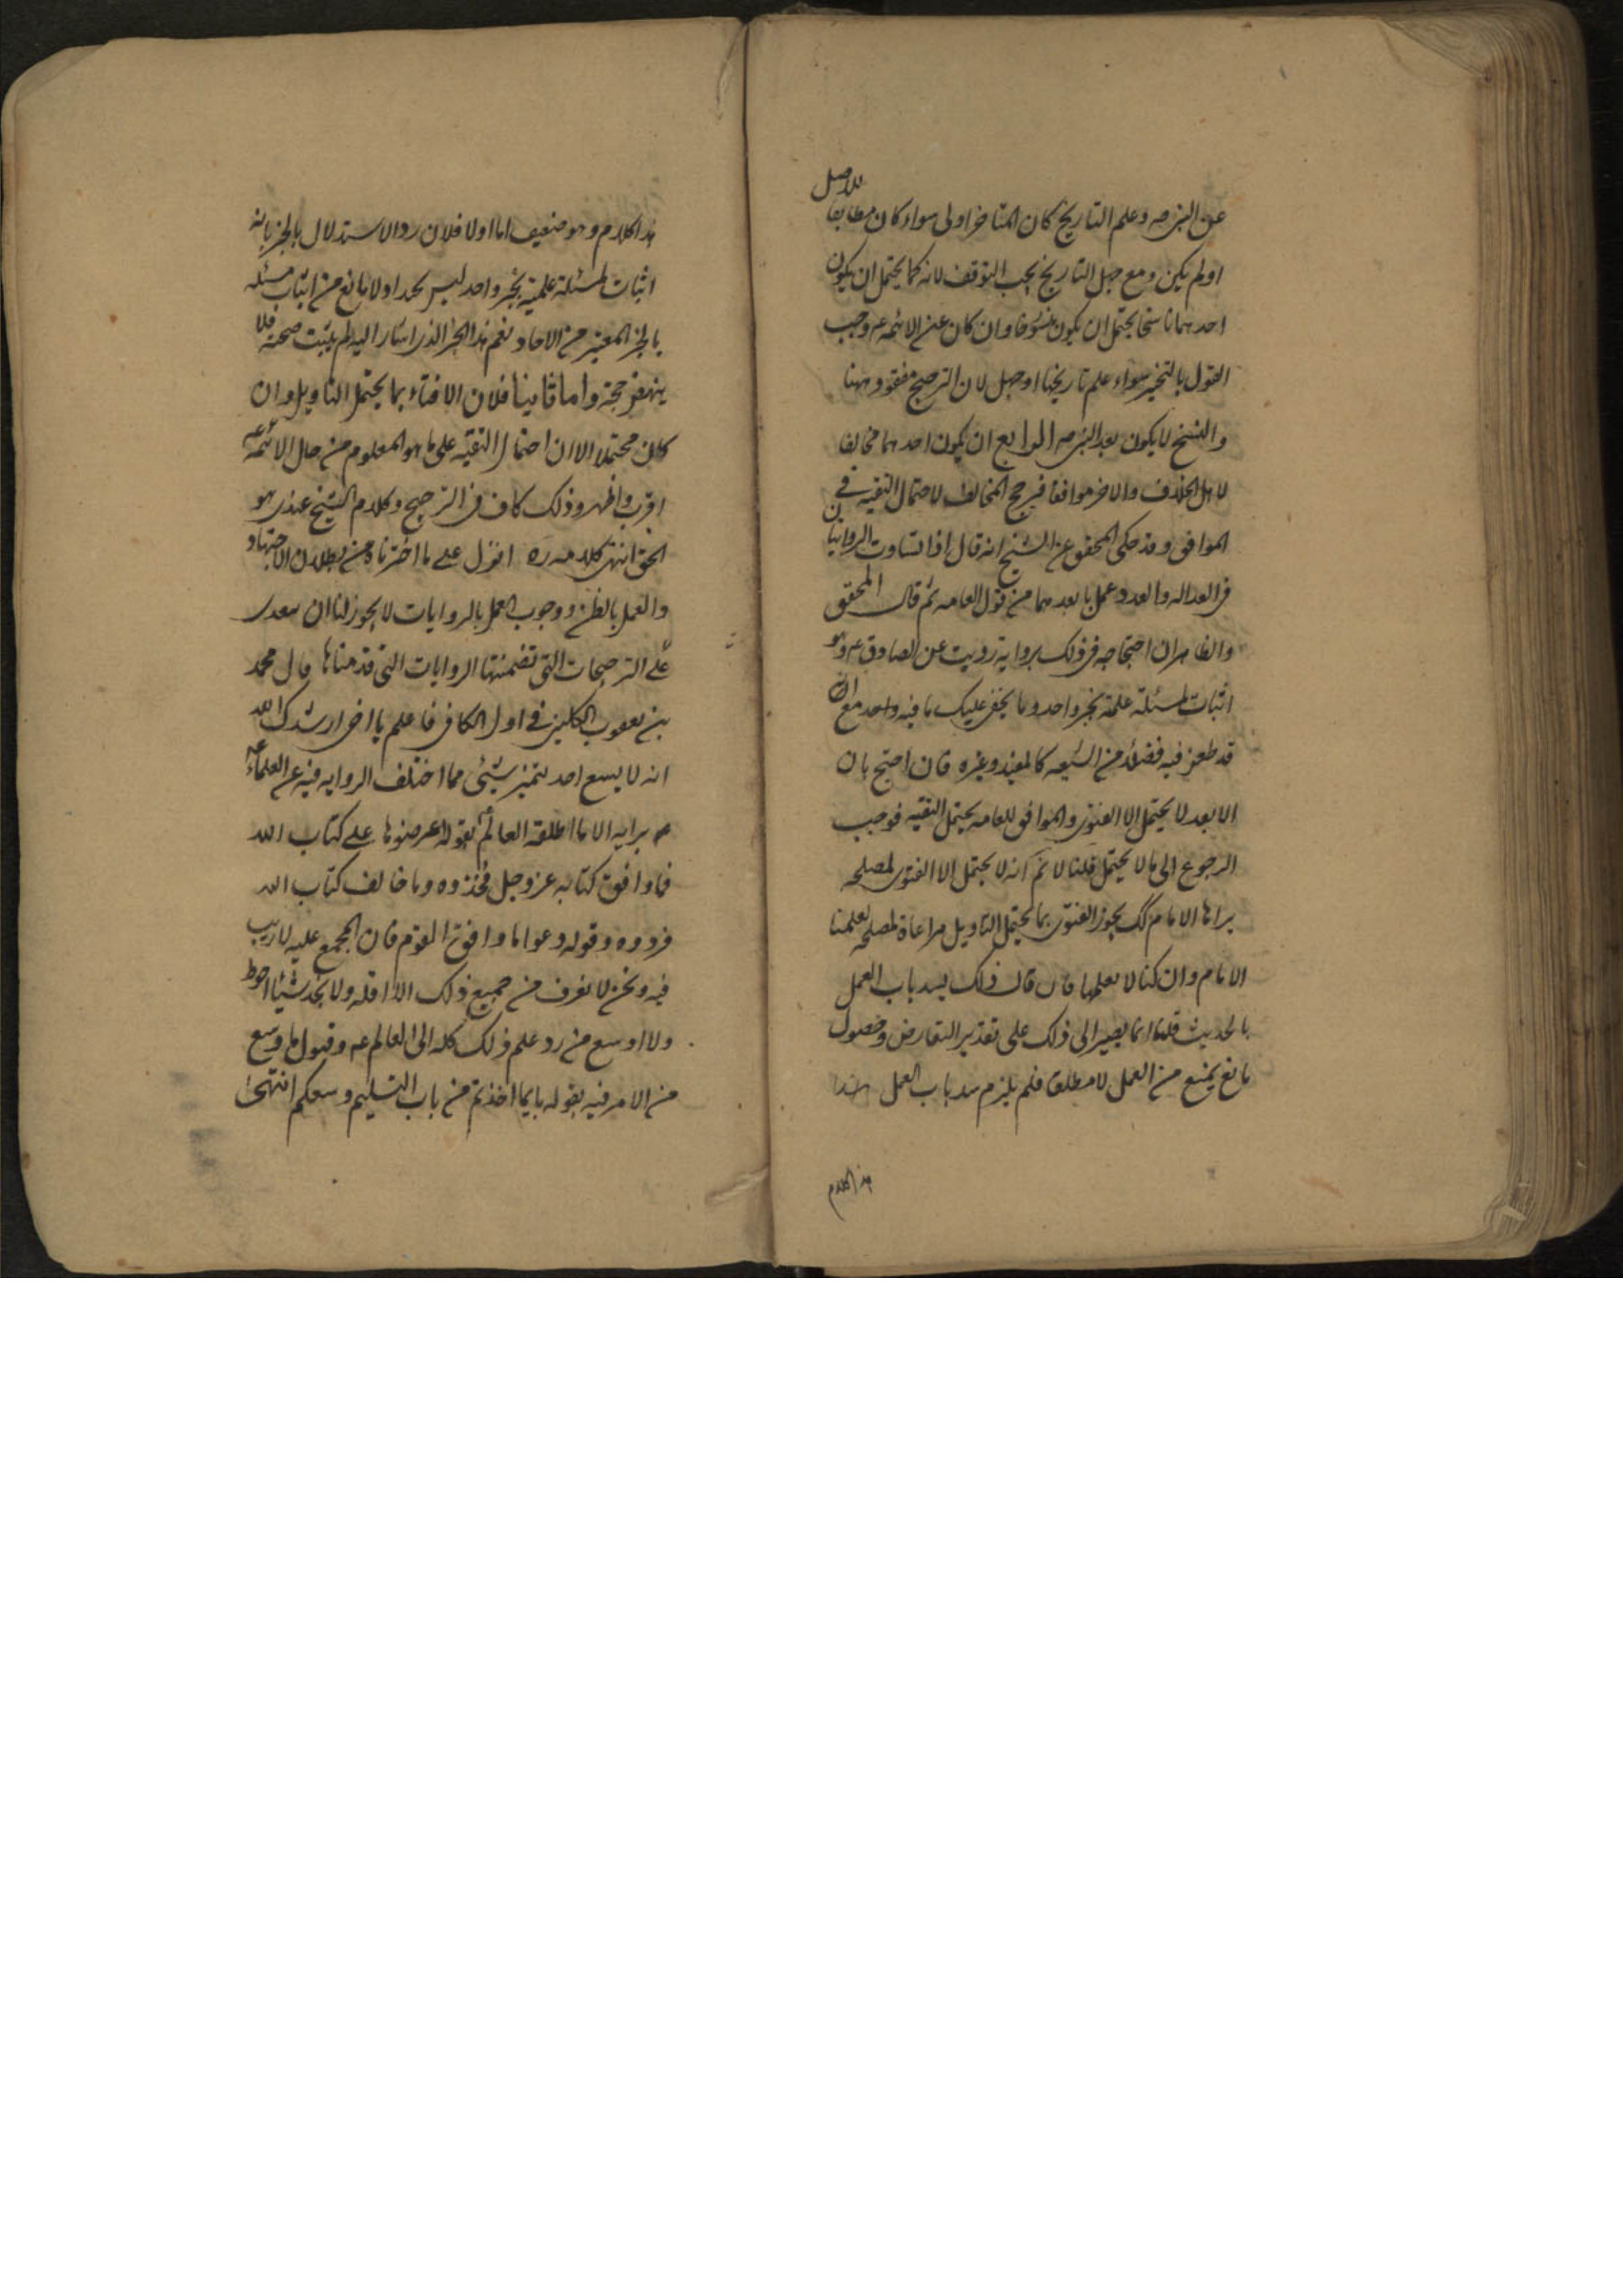 عن النبي ص وعلم التاريخ كان المتاخر اولى سواء كان مطابقا
للاصل
اولم يكن ومع جهل التاريخ يجب التوقف لانه كما يحتمل ان يكون
احدهما ناسخا يحتمل ان يكون منسوخا وان كان عن الائمه ع وجب
القول بالتخيير سواء علم تاريخها او جهل لان الترجيح مفقود ههنا
والنسخ لا يكون بعد النبي ص الرابع ان يكون احدهما مخالفا
لاهل الخلاف والاخر موافقا فيرجح المخالف لاحتمال التقيه في
الموافق وقد حكى المحقق عن الشيخ انه قال اذا تساوت الروايتان
في العداله والعدد عمل بابعدهما من قول العامه ثم قال المحقق
والظاهر ان احتجاجه في ذلك برواية رويت عن الصادق ع وهو
اثبات لمسئلة علمية بخبر واحد وما يخفى عليك ما فيه واحد مع انه
قد طعن فيه فضلاء من الشيعه كالمفيد وغيره فان احتج بان
الابعد لا يحتمل الا الفتوى والموافق للعامه يحتمل التقيه فوجب
الرجوع الى ما لا يحتمل قلنا لا نم انه لا يحتمل الا الفتوى لمصلحه
يراها الامام كك يجوز الفتوى بما يحتمل التاويل مراعاة لمصلحه يعلمها
الامام وان كنا لا نعلمها فان قال ذلك يسد باب العمل
بالحديث قلنا انما نصير الى ذلك على تقدير التعارض وحصول
مانع يمنع من العمل لا مطلقا فلم يلزم سد باب العمل هذا
هذا الكلام
هذا الكلام وهو ضعيف اما اولا فلان رد الاستدلال بالخبر بانه
اثبات لمسئلة علمية بخبر واحد ليس بجيد اذ لا مانع من اثبات مسئله
بالخبر المعتبر من الاحاد نعم هذا الخبر الذي اشار اليه لم يثبت صحته فلا
ينهض حجة واما ثانيا فلان الافتاء بما يحتمل التاويل وان
كان محتملا الا ان احتمال التقيه على ما هو المعلوم من حال الائمه ع
اقرب واظهر وذلك كاف في الترجيح وكلام الشيخ عندي هو
الحق انتهى كلامه ره اقول على ما اخترناه من بطلان الاجتهاد
والعمل بالظن ووجوب العمل بالروايات لا يجوز لنا ان نعدى
على الترجيحات التي تضمنتها الروايات التي قدمناها قال محمد
بن يعقوب الكليني في اول الكافي فاعلم يا اخي ارشدك الله
انه لا يسع احد تميز شيئ مما اختلف الروايه فيه عن العلماء ع
برايه الا ما اطلقه العالم بقوله اعرضوها على كتاب الله
فما وافق كتابه عز وجل فخذوه وما خالف كتاب الله
فردوه وقوله دعوا ما وافق القوم فان المجمع عليه لا ريب
فيه ونحن لا نعرف من جميع ذلك الا اقله ولا نجد شيئا احوط
ولا اوسع من رد علم ذلك كله الى العالم ع وقبول ما وسع
من الامر فيه بقوله بايما اخذتم من باب التسليم وسعكم انتهى